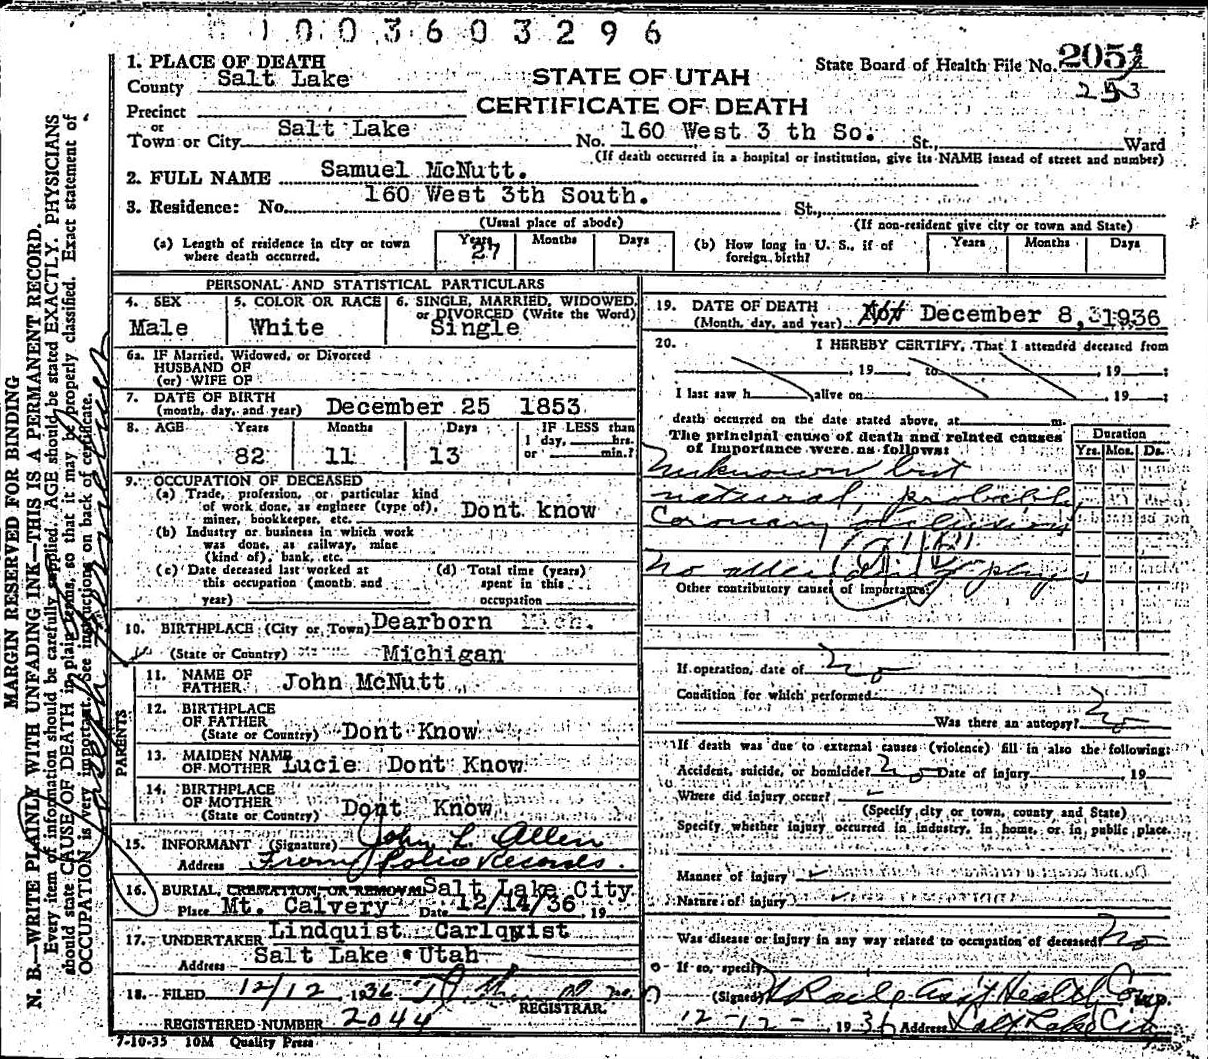 1003603296
1. PLACE OF DEATH
County Salt Lake
STATE OF UTAH
CERTIFICATE OF DEATH
State Board of Health File No. 205
253
Precinct
or
Town or City Salt Lake No. 160 West 3 th So. St., Ward
(If death occurred in a hospital or institution, give its NAME insead of street and number)
2. FULL NAME Samuel McNutt.
3. Residence: No. 160 West 3th South. St.,
(Usual place of abode) (If non-resident give city or town and State)
(a) Length of residence in city or town where death occurred. Years 27 Months Days
(b) How long in U. S., if of foreign birth? Years Months Days
PERSONAL AND STATISTICAL PARTICULARS
4. SEX Male
5. COLOR OR RACE White
6. SINGLE, MARRIED, WIDOWED, or DIVORCED (Write the Word) Single
6a. IF Married, Widowed, or Divorced
HUSBAND OF
(or) WIFE OF
7. DATE OF BIRTH
(month, day, and year) December 25 1853
8. AGE Years Months Days IF LESS than
82 11 13 1 day, hrs.
or min.?
9. OCCUPATION OF DECEASED
(a) Trade, profession, or particular kind
of work done, as engineer (type of),
miner, bookkeeper, etc. Dont know
(b) Industry or business in which work
was done, as railway, mine
(kind of), bank, etc.
(c) Date deceased last worked at
this occupation (month and
year)
(d) Total time (years)
spent in this
occupation
10. BIRTHPLACE (City or Town) Dearborn Mich.
(State or Country) Michigan
PARENTS
11. NAME OF
FATHER John McNutt
12. BIRTHPLACE
OF FATHER
(State or Country) Dont Know
13. MAIDEN NAME
OF MOTHER Lucie Dont Know
14. BIRTHPLACE
OF MOTHER
(State or Country) Dont Know
15. INFORMANT (Signature) John L. Allen
Address From Police Records.
16. BURIAL, CREMATION, OR REMOVAL Salt Lake City
Place Mt. Calvery Date 12/14/36 , 19
17. UNDERTAKER Lindquist Carlquist
Address Salt Lake Utah
18. FILED 12/12 1936
REGISTRAR.
REGISTERED NUMBER 2044
7-10-35 10M Quality Press
19. DATE OF DEATH
(Month, day, and year) December 8, 1936
20. I HEREBY CERTIFY, That I attended deceased from
, 19 to , 19 ;
I last saw h alive on , 19 ;
death occurred on the date stated above, at m.
The principal cause of death and related causes
of importance were as follows:
Duration
Yrs. Mos. Ds.
Unknown but
natural, probably
Coronary occlusion
No attending phys
Other contributory causes of importance:
If operation, date of No
Condition for which performed
Was there an autopsy? No
If death was due to external causes (violence) fill in also the following:
Accident, suicide, or homicide? No Date of injury , 19
Where did injury occur?
(Specify city or town, county and State)
Specify whether injury occurred in industry, in home, or in public place.
Manner of injury
Nature of injury
Was disease or injury in any way related to occupation of deceased? No
If so, specify
(Signed) Ass't Health Com.
12-12- , 1936 Address Salt Lake City
MARGIN RESERVED FOR BINDING
N. B.—WRITE PLAINLY WITH UNFADING INK—THIS IS A PERMANENT RECORD.
Every item of information should be carefully supplied. AGE should be stated EXACTLY. PHYSICIANS
should state CAUSE OF DEATH in plain terms, so that it may be properly classified. Exact statement of
OCCUPATION is very important. See instructions on back of certificate.